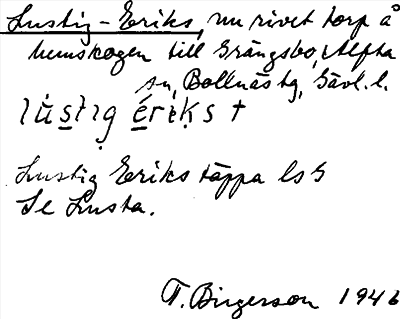 Lustig-Eriks, nu rivet torp å
hemskogen till Grängsbo, Alfta
sn, Bollnäs tg, Gävl. l.
lùstig ériks †
Lustig Erikstäppa ls G
Se Lusta.
T. Birgerson 1946